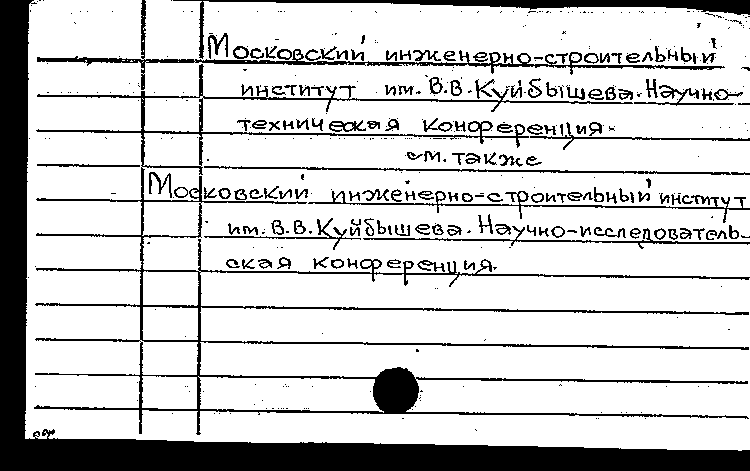 Московский инженерно-строительный
институт им. В.В. Куйбышева. Научно-
техническая конференция.
см. также
Московский инженерно-строительный институт
им. В.В. Куйбышева. Научно-исследователь-
ская конференция.